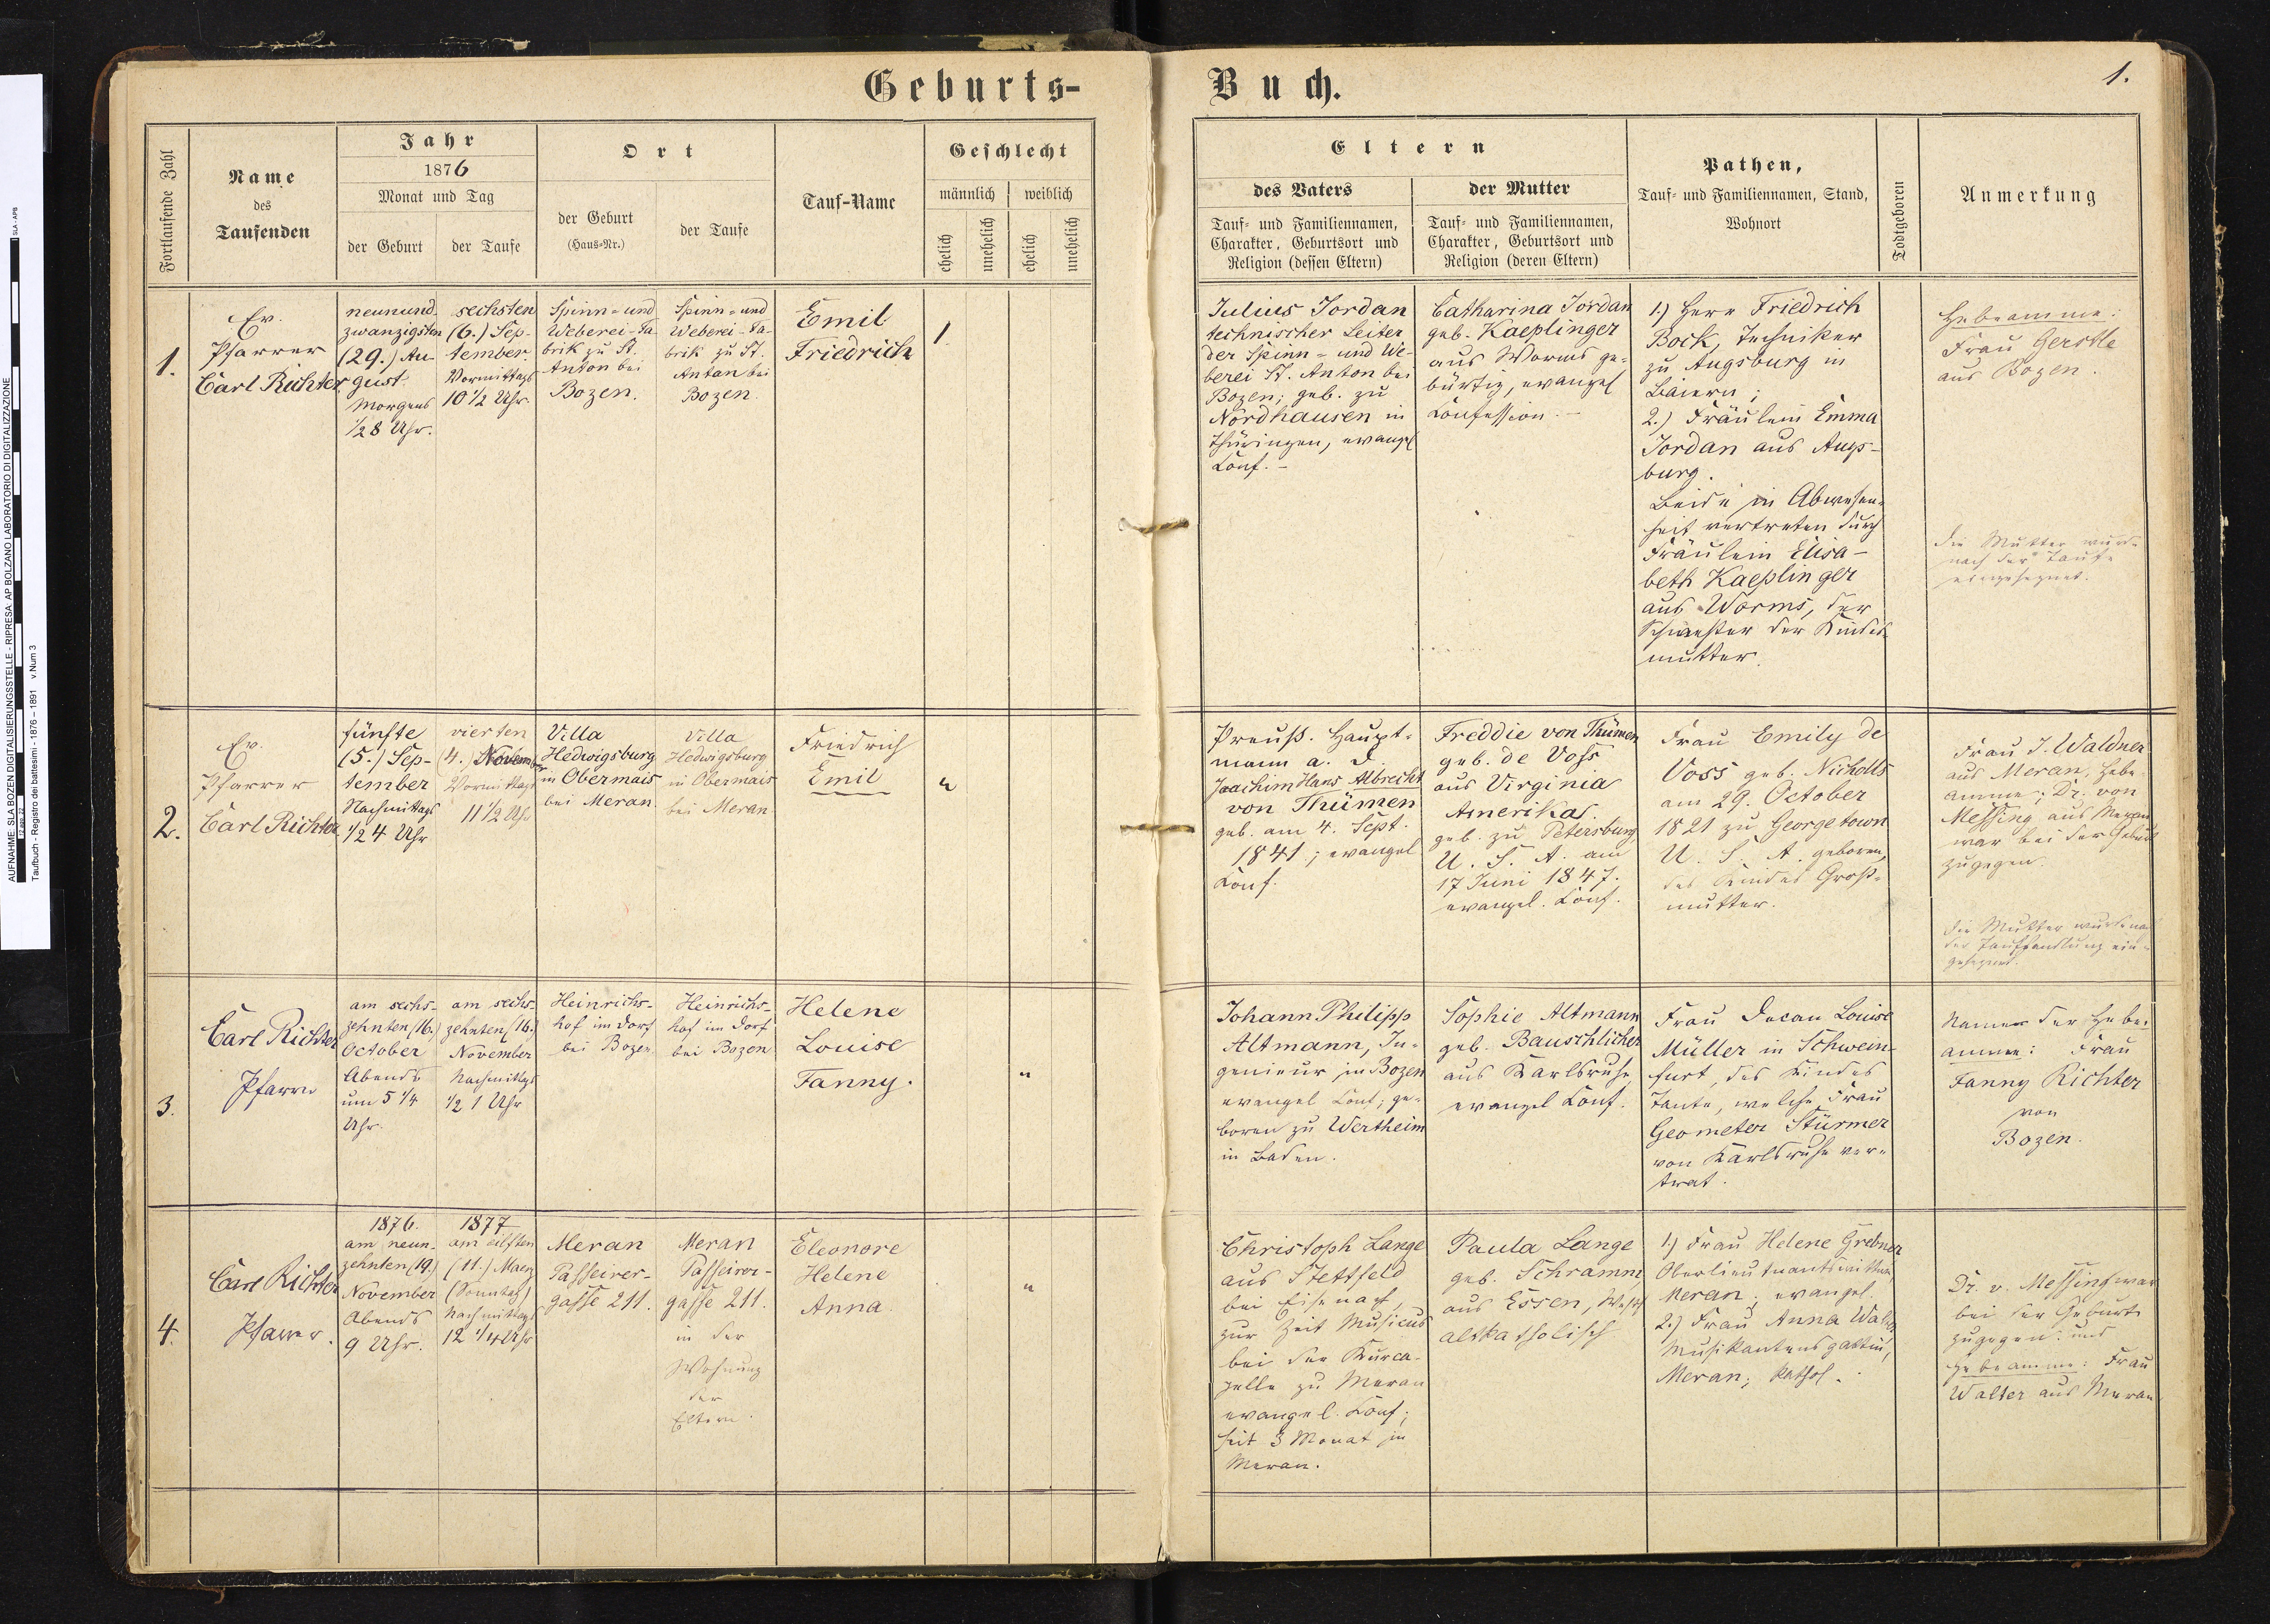 Geburts-
Buch.
1.
Fortlaufende Zahl
Name
des
Taufenden
Jahr
1876
Monat und Tag
der Geburt
der Taufe
Ort
der Geburt
(Haus=Nr.)
der Taufe
Tauf-Name
Geschlecht
männlich
weiblich
ehelich
unehelich
ehelich
unehelich
Eltern
des Vaters
Tauf= und Familiennamen,
Charakter, Geburtsort und
Religion (dessen Eltern)
der Mutter
Tauf= und Familiennamen,
Charakter, Geburtsort und
Religion (deren Eltern)
Pathen,
Tauf= und Familiennamen, Stand,
Wohnort
Todtgeboren
Anmerkung
1.
Ev.
Pfarrer
Carl Richter.
neunund
zwanzigsten
(29.) Au-
gust.
Morgens
1/2 8 Uhr.
sechsten
(6.) Sep-
tember.
Vormittags
10 1/2 Uhr.
Spinn= und
Weberei-Fa
brik zu St.
Anton bei
Bozen.
Spinn= und
Weberei-Fa-
brik zu St.
Anton bei
Bozen.
Emil
Friedrich
1
Julius Jordan
technischer Leiter
der Spinn= und We-
berei St. Anton bei
Bozen; geb. zu
Nordhausen in
Thüringen, evangel
Conf. -
Catharina Jordan
geb. Kaeplinger
aus Worms ge-
bürtig, evangel
Confession. -
1.) Herr Friedrich
Bock, Techniker
zu Augsburg in
Baiern;
2.) Fräulein Emma
Jordan aus Augs-
burg.
Beide in Abwesen-
heit vertreten durch
Fräulein Elisa-
beth Kaeplinger
aus Worms, der
Schwester der Kindes
mutter.
Hebeamme:
Frau Gerstle
aus Bozen.
Die Mutter wurde
nach der Taufe
eingesegnet.
2.
Ev.
Pfarrer
Carl Richter
fünfte
(5.) Sep-
tember
Nachmittags
1/2 4 Uhr
vierten
(4.) November
Vormittags
11 1/2 Uhr
Villa
Hedwigsburg
in Obermais
bei Meran.
Villa
Hedwigsburg
in Obermais
bei Meran
Friedrich
Emil
"
Preuß. Haupt-
mann a. D.
Joachim Hans Albrecht
von Thümen
geb. am 4. Sept.
1841; evangel
Conf.
Freddie von Thümen
geb. de Voss
aus Virginia
Amerikas.
geb. zu Petersburg
U. S. A. am
17 Juni 1847.
evangel. Conf.
Frau Emily de
Voss geb. Nicholls
am 29. October
1821 zu Georgetown
U. S. A. geboren,
des Kindes Groß-
mutter.
Frau J. Waldner
aus Meran, Hebe-
amme; Dr. von
Messing aus Meran
war bei der Geburt
zugegen.
Die Mutter wurde na
der Taufhandlung ein-
gesegnet.
3.
Carl Richter
Pfarrer
am sechs-
zehnten (16.)
October
Abends
um 5 1/4
Uhr.
am sechs
zehnten (16.)
November
Nachmittags
1/2 1 Uhr
Heinrichs-
hof im Dorf
bei Bozen
Heinrichs-
hof im Dorf
bei Bozen
Helene
Louise
Fanny.
"
Johann Philipp
Altmann, In-
genieur in Bozen
evangel Conf; ge-
boren zu Wertheim
in Baden.
Sophie Altmann
geb. Bauschlicher
aus Karlsruhe
evangel Conf.
Frau Decan Louise
Müller in Schwein-
furt, des Kindes
Tante, welche Frau
Geometer Stürmer
von Karlsruhe ver-
trat.
Name der Hebe-
amme: Frau
Fanny Richter
von
Bozen.
4.
Carl Richter
Pfarrer.
1876.
am neun-
zehnten (19.)
November
Abends
9 Uhr.
1877
am eilften
(11.) Maerz
(Sonntag)
Nachmittags
12 1/4 Uhr
Meran
Passeirer-
gasse 211.
Meran
Passeirer-
gasse 211.
in der
Wohnung
der
Eltern.
Eleonore
Helene
Anna.
"
Christoph Lange
aus Stettfeld
bei Eisenach,
zur Zeit Musicus
bei der Kurca-
pelle zu Meran
evangel. Conf;
seit 3 Monat in
Meran.
Paula Lange
geb. Schramm
aus Essen, Westf
altkatholisch
1.) Frau Helene Grebner
Oberlieutnantswittwe,
Meran; evangel.
2.) Frau Anna
Musikantensgattin,
Meran; kathol.
Dr. v. Messing war
bei der Geburt
zugegen und
Hebeamme: Frau
Walter aus Meran
AUFNAHME: SLA BOZEN DIGITALISIERUNGSSTELLE - RIPRESA: AP BOLZANO LABORATORIO DI DIGITALIZZAZIONE
Taufbuch - Registro dei battesimi - 1876 – 1891 v.Num 3
SLA - APB